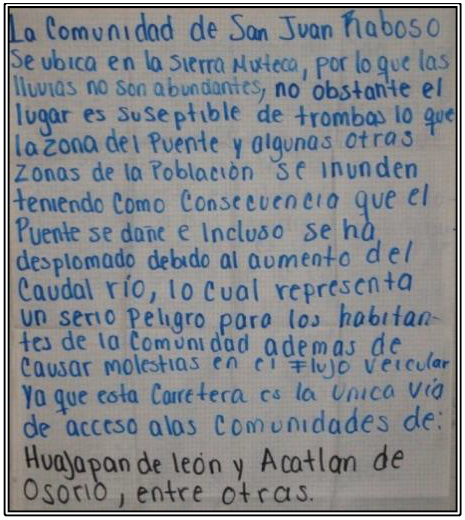 La Comunidad de San Juan Raboso
Se ubica en la sierra Mixteca, por lo que las
lluvias no son abundantes, no obstante el
lugar es suseptible de trombas lo que
la zona del Puente y algunas otras
zonas de la Población se inunden
teniendo como Consecuencia que el
Puente se dañe e Incluso se ha
desplomado debido al aumento del
Caudal río, lo cual representa
un serio Peligro para los habitan-
tes de la Comunidad ademas de
causar molestias en el Flujo veicular
Ya que esta Carretera es la Unica vía
de acceso alas comunidades de:
Huajapan de león y Acatlan de
Osorio, entre otras.